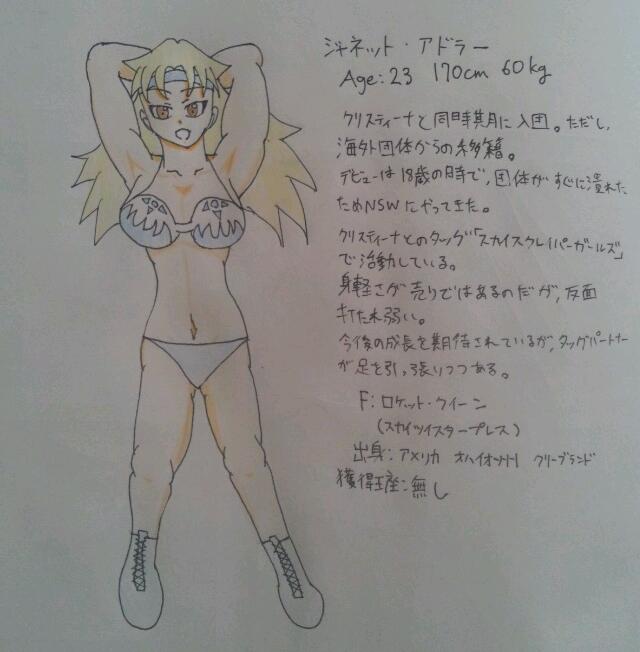 ジャネット・アドラー
Age:23 170cm 60kg
クリスティーナと同時期に入団。ただし、
海外団体からの移籍。
デビューは18歳の時で、団体がすぐに潰れた
ためNSWにやってきた。
クリスティーナとのタッグ「スカイスクレイパーガールズ」
で活動している。
身軽さが売りではあるのだが、反面
打たれ弱い。
今後の成長を期待されているが、タッグパートナー
が足を引っ張りつつある。
F:ロケット・クイーン
(スカイツイスタープレス)
出身:アメリカ オハイオ州 クリーブランド
獲得王座:無し